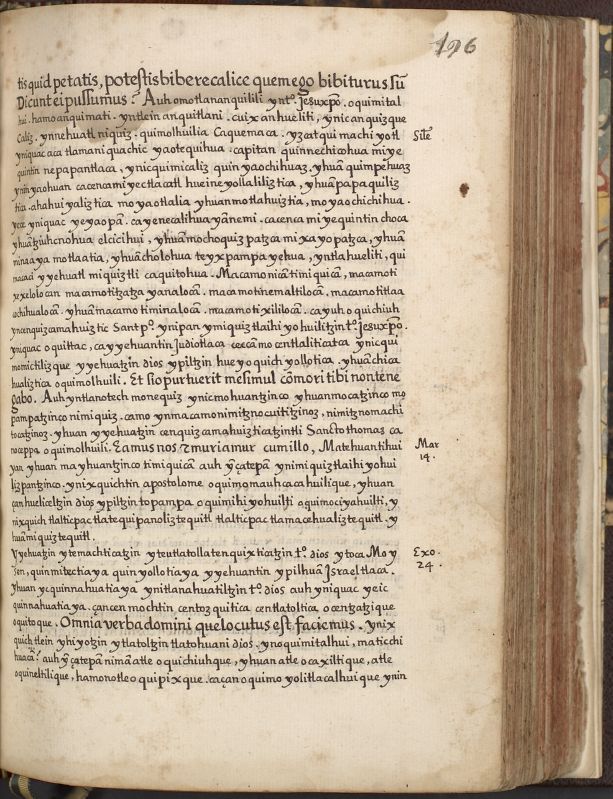 196
tis quid petatis, potestis bibere calice quem ego bibiturus sũ
Dicunt ei pussumus: Auh omotlananquilili yntº. Jesuxp̃o. oquimital
hui. hamo anquimati. yntlein anquitlani. cuix anhueliti, ynic anquizque
Caliz. ynnehuatl niquiz. quimolhuilia Caquemaca. yzatqui machiyotl
yniquac aca tlamani quachic yaotequihua. capitan quinnechicohua miye
quintin nepapantlaca, ynic quimicaliz quin yaochihuaz, yhuã quimpehuaz
ynin yaohuan cacencamiyectlacatl hueine yollaliliztica, yhuã papaquiliz
tica. ahahuiyaliztica moyaotlalia yhuan motlahuiztia, moyaochichihua.
yece yniquac yeyaopã. cayenecalihuayãnemi. cacenca miyequintin choca
yhuãtzihcnohua elcicihui, yhuã mochoquizpatzca mixayopatzca, yhuã
minaya motlaatia, yhuã cholohua teyxpampa yehua, yntlahueliti, qui
macaci yyehuatl miquiztli caquitohua. Macamo nicã timiquicã, macamoti
xexelolocan macamotitzatza yanalocã. macamotinemaltilocã. macamotitlaa
ochihualocã. yhuã macamo timinalocã. macamotixililocã. cayuh oquichiuh
yncenquizcamahuiztic Sant pº. ynipan ymiquiztlaihiyohuilitzin tº. Jesuxp̃o.
yniquac oquittac, cayyehuantin Judiotlaca cexcãmo centlalitica tca ynicqui
momictiliz que yyehuatzin dios ypiltzin hueyoquichyollotica. yhuã chica
hualiztica oquimolhuili. Et si opurtuerit me simul cõmori tibi non te ne
gabo. Auh yntlanotech monequiz ynic mohuantzinco yhuanmocatzinco mo
pampatzinco nimiquiz. camo ynmacamonimitznocuitiz inoz, nimitznomachi
tocatzinoz. yhuan yyehuatzin cenquizcamahuizticatzintli Sancto thomas ca
noceppa oquimolhuili. Eamus nos & muriamur cum illo, Matehuantihui
yan yhuan mahuantzinco timiquicã auh yçatepã ynimiquiztlaihiyohui
liz pantzinco. ynixquichtin apostolome oquimomauhcacahuilique, yhuan
çan huelicel tzin dios ypiltzin topampa oquimihiyohuilti oquimociyahuilti, y
nixquich tlalticpactlatequipanoliztequitl tlalticpactlamacehualiztequitl. y
huã miquiztequitl.
Yyehuatzin ytemachticatzin yteutlatollatenquixticatzin tº. dios ytoca Moy
sen, quinmitectiaya quinyollotiaya yyehuantin ypilhuã Israel tlaca.
yhuan yc quinnahuatiaya ynitlanahuatiltzin tº. dios auh yniquac yeic
quinnahuatiaya. çancen mochtin centozquitica centlatoltica ocentzatzique
oquitoque. Omnia verba domini que locutus est faciemus. ynix
quichtlein yhiyotzin ytlatoltzin tlatohuani dios, ynoquimitalhui, maticchi
huacã. auh yçatepã nimã atle oquichiuhque, yhuan atle ocaxiltique, atle
oquineltilique, hamonotle oquipixque. caçan oquimoyolitlacalhuique ynin
Sitẽ
Mar
14.
Exo.
24.